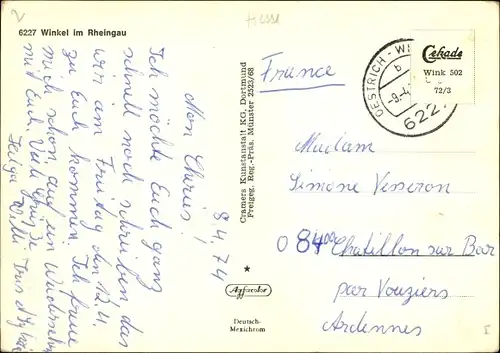 Hesse
6227 Winkel im Rheingau
8.4.74
Mon Chéris!
Ich möchte Euch ganz
schnell noch schreiben das
wir am Freitag den 12.4.
zu Euch kommen. Ich freue
mich schon auf ein Wiedersehn
mit Euch. Viele Grüße
Helga Willi
Cramers Kunstanstalt KG, Dortmund
Freigeg. Reg.-Präs. Münster 2523/68
Agfacolor
Deutsch-
Mexichrom
France
OESTRICH-WI
b
-9.-4.
622
Cekade
Wink 502
72/3
Madam
Simone Vesseron
08400 Chatillon sur Bar
par Vouziers
Ardennes